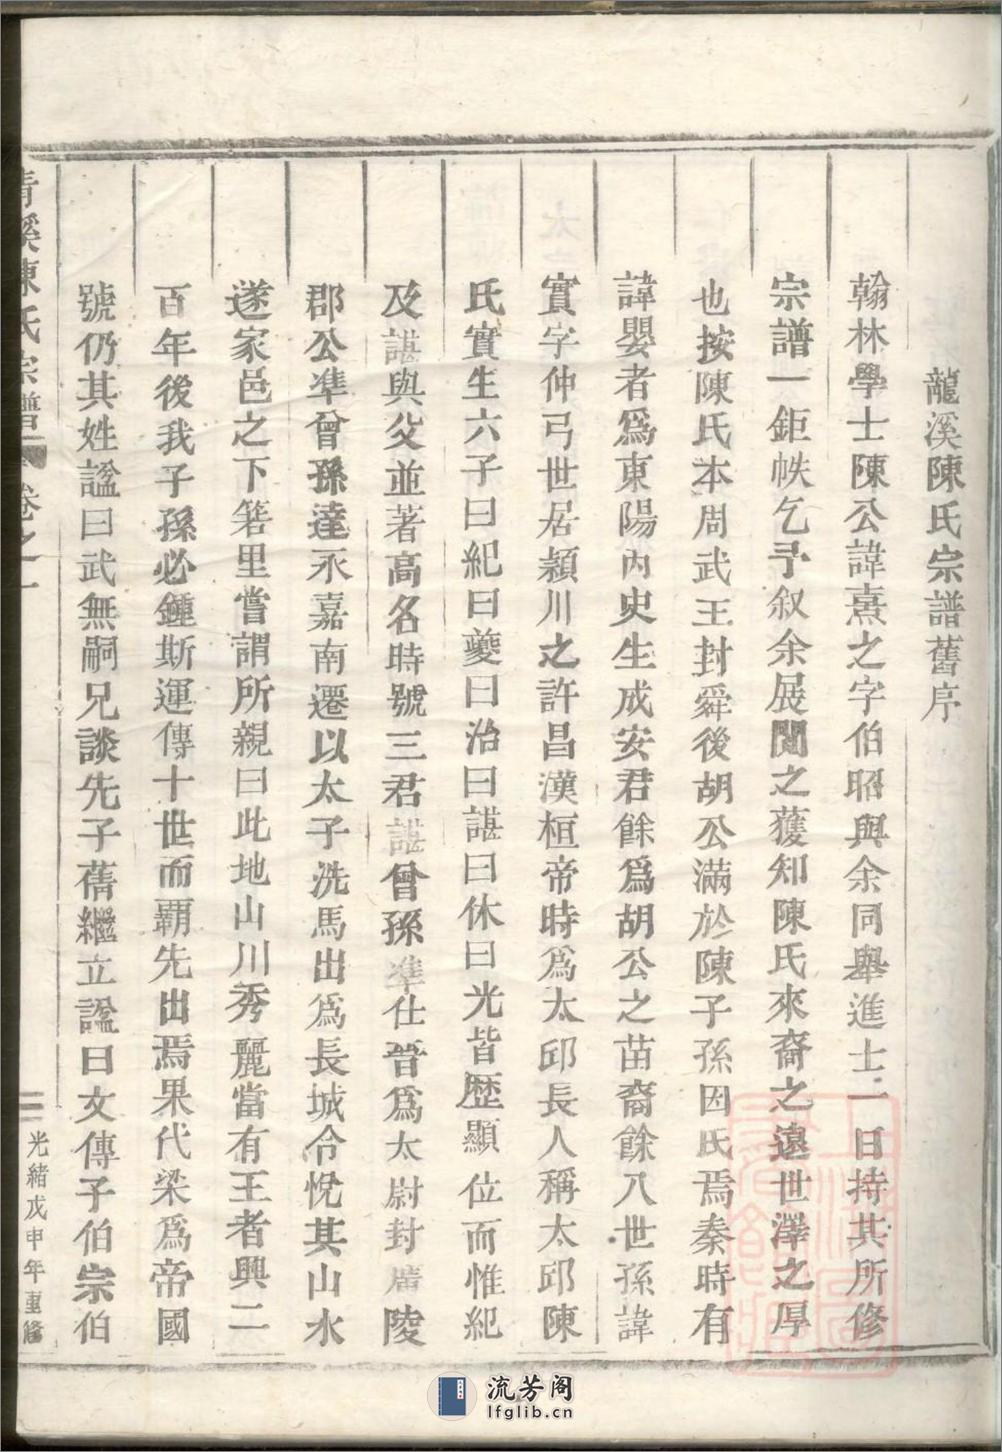 龍溪陳氏宗譜舊序
翰林學士陳公諱熹之字伯昭與余同舉進士一日持其所修
宗譜一鉅帙乞予叙余展閱之蒦知陳氏來裔之遠世澤之厚
也按陳氏本周武王封舜後胡公滿於陳子孫因氏焉秦時有
諱嬰者爲東陽內史生成安君餘爲胡公之苗裔餘八世孫諱
實字仲弓世居潁川之許昌漢桓帝時爲太邱長人稱太邱陳
氏實生六子曰紀曰夔曰治曰諶曰休曰光皆歷顯位而惟紀
及諶與父並著高名時號三君諶曾孫準仕晉爲太尉封廣陵
郡公準曾孫達永嘉南遷以太子洗馬出爲長城令悅其山水
遂家邑之下箬里嘗謂所親曰此地山川秀麗當有王者興二
百年後我子孫必鍾斯運傳十世而霸先出焉果代梁爲帝國
號仍其姓諡曰武無嗣兄談先子蒨繼立諡曰文傳子伯宗伯
清溪陳氏宗譜 卷之一
二
光緒戊申年重修
流芳阁
lfglib.cn